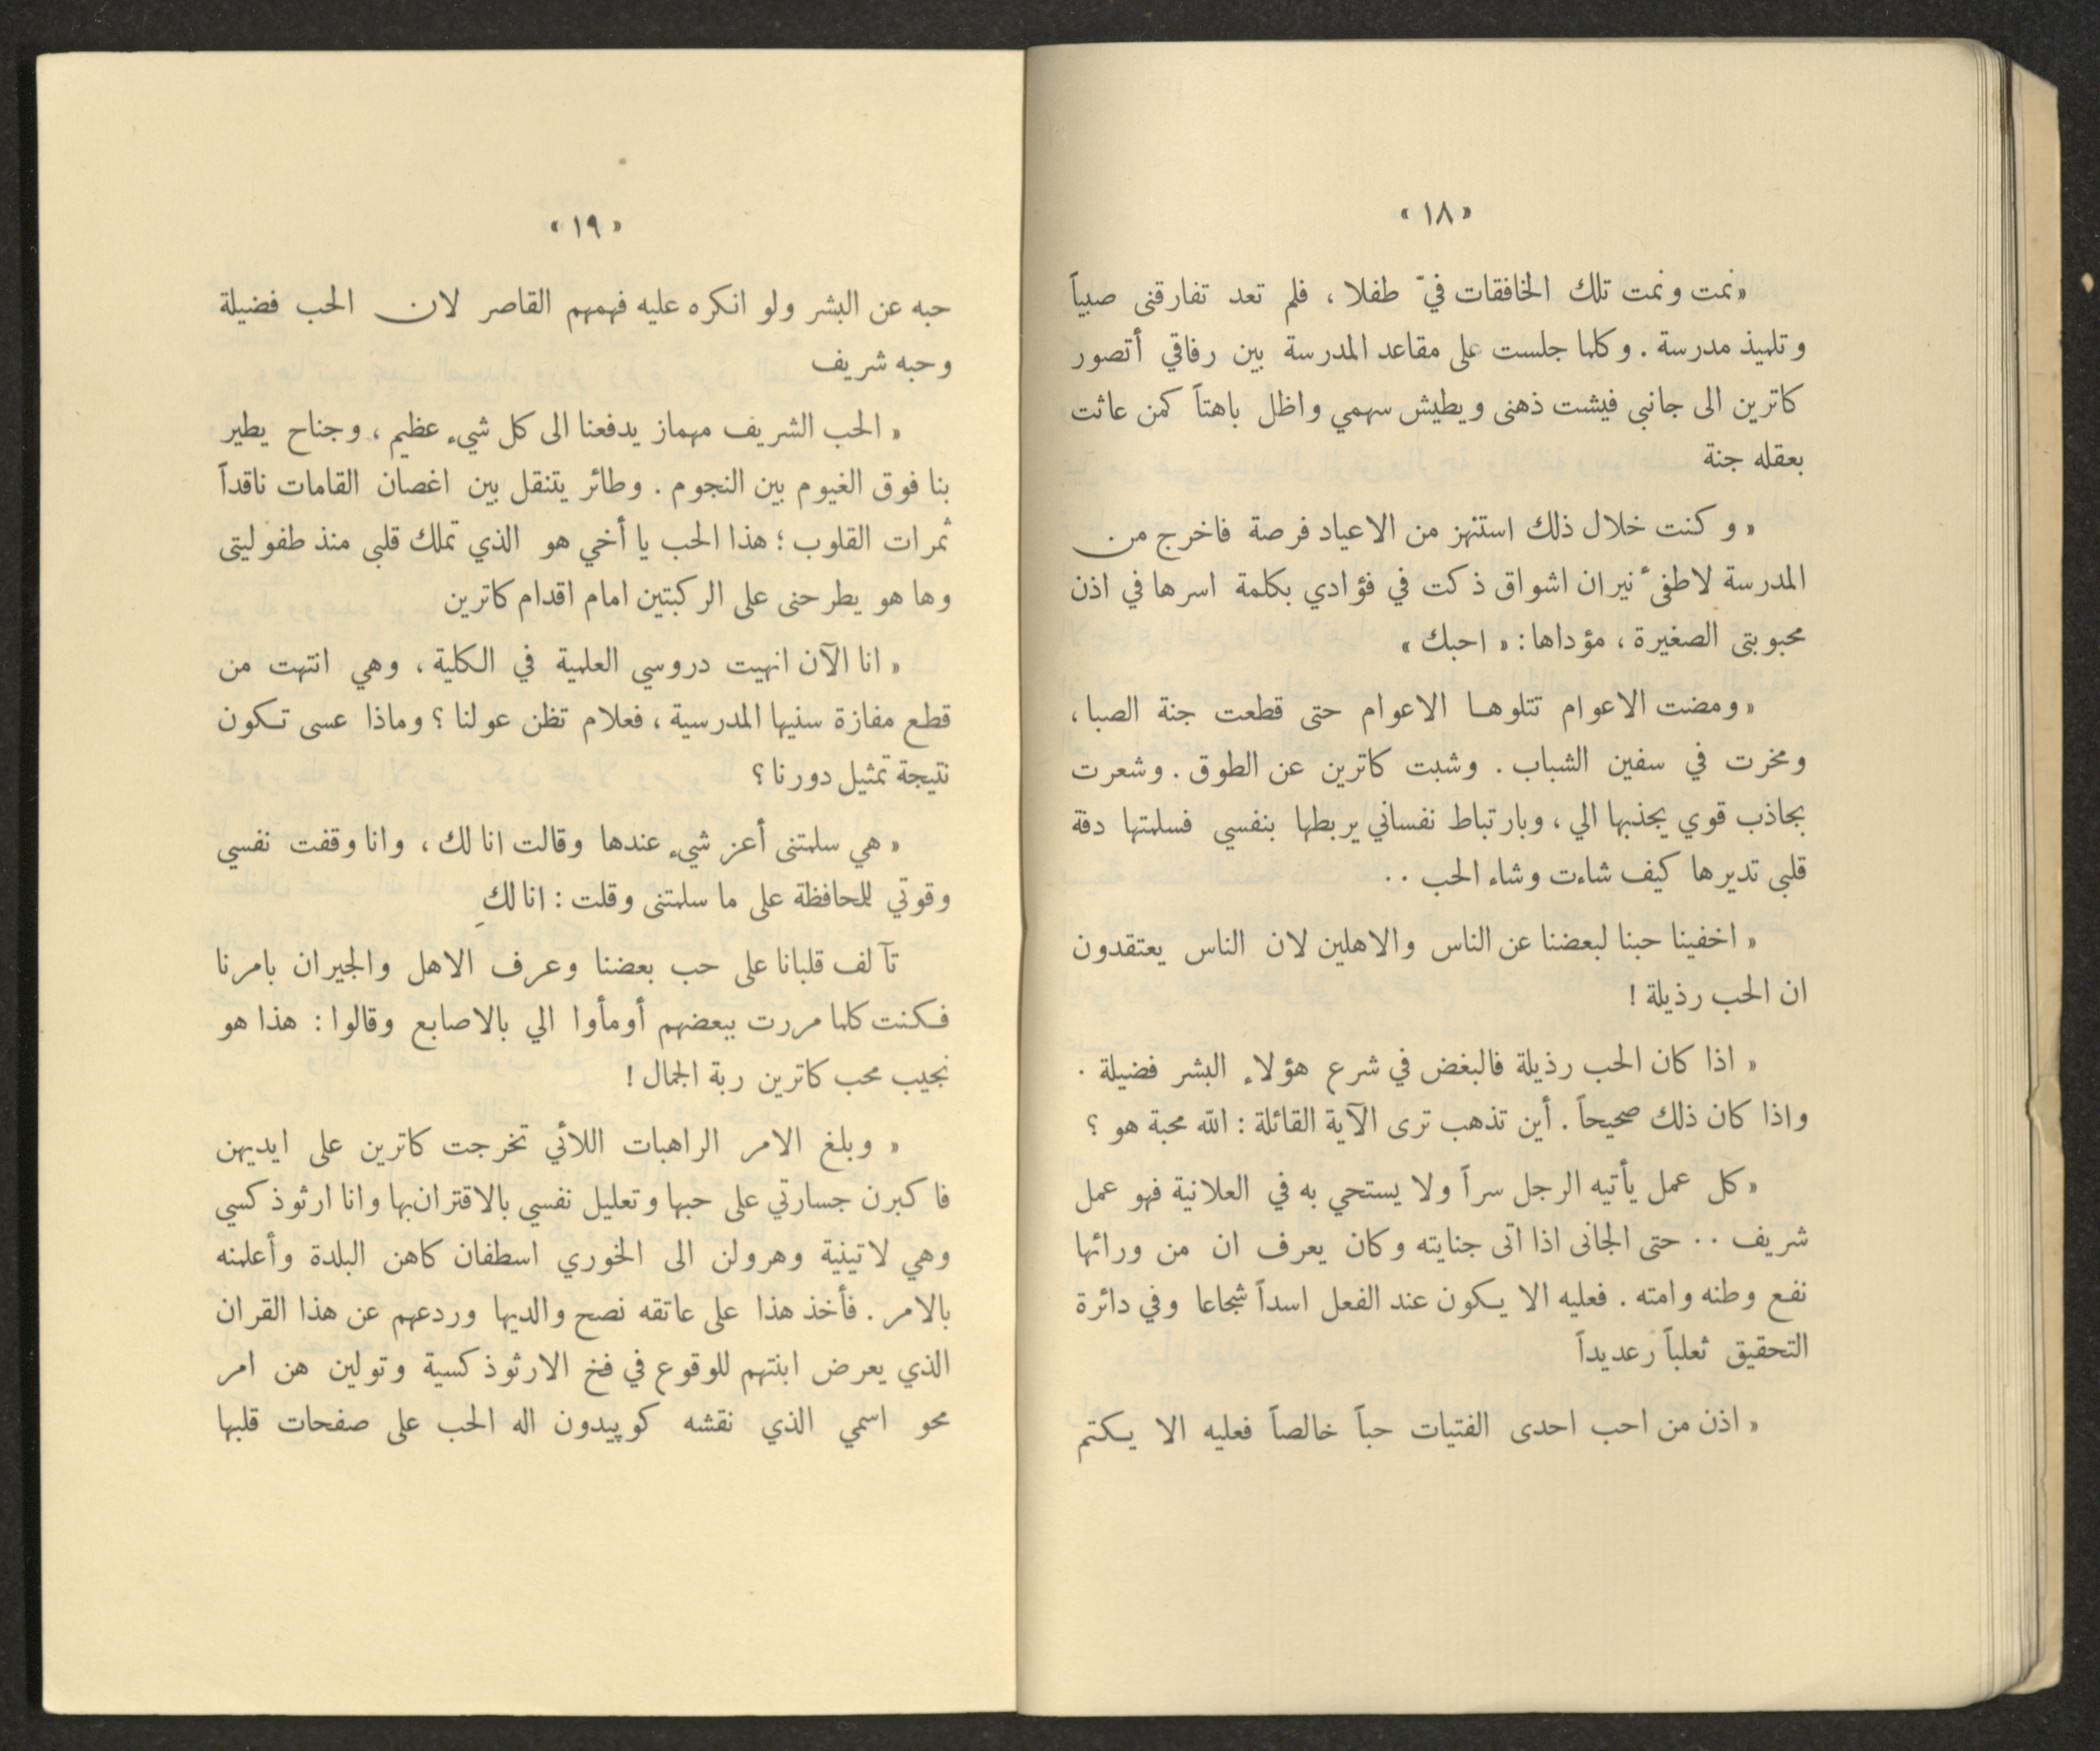 «١٨»
«نمت ونمت تلك الخافقات فيّ طفلا ، فلم تعد تفارقنى صبياً
وتلميذ مدرسة . وكلما جلست على مقاعد المدرسة بين رفاقي أتصور
كاترين الى جانبى فيشت ذهنى ويطيش سهمي واظل باهتاً كمن عاثت
بعقله جنة
« وكنت خلال ذلك استنهز من الاعياد فرصة فاخرج من
المدرسة لاطفئ نيران اشواق ذكت في فؤادي بكلمة اسرها في اذن
محبوبتى الصغيرة ، مؤداها : « احبك »
« ومضت الاعوام تتلوها الاعوام حتى قطعت جنة الصبا ،
ومخرت في سفين الشباب . وشبت كاترين عن الطوق . وشعرت
بجاذب قوي يجذبها الي ، وبارتباط نفساني يربطها بنفسي فسلمتها دفة
قلبى تديرها كيف شاءت وشاء الحب ..
« اخفينا حبنا لبعضنا عن الناس والاهلين لان الناس يعتقدون
ان الحب رذيلة !
« اذا كان الحب رذيلة فالبغض في شرع هؤلاء البشر فضيلة .
واذا كان ذلك صحيحاً . أين تذهب ترى الآية القائلة : الله محبة هو ؟
«كل عمل يأتيه الرجل سراً ولا يستحي به في العلانية فهو عمل
شريف .. حتى الجانى اذا اتى جنايته وكان يعرف ان من ورائها
نفع وطنه وامته . فعليه الا يكون عند الفعل اسداً شجاعا وفي دائرة
التحقيق ثعلباً رعديداً
« اذن من احب احدى الفتيات حباً خالصاً فعليه الا يكتم
«١٩»
حبه عن البشر ولو انكره عليه فهمهم القاصر لان الحب فضيلة
وحبه شريف
« الحب الشريف مهماز يدفعنا الى كل شيء عظيم ، وجناح يطير
بنا فوق الغيوم بين النجوم . وطائر يتنقل بين اغصان القامات ناقداً
ثمرات القلوب ؛ هذا الحب يا أخي هو الذي تملك قلبى منذ طفوليتى
وها هو يطرحنى على الركبتين امام اقدام كاترين
« انا الآن انهيت دروسي العلمية في الكلية ، وهي انتهت من
قطع مفازة سنيها المدرسية ، فعلام تظن عولنا ؟ وماذا عسى تكون
نتيجة تمثيل دورنا ؟
« هي سلمتنى أعز شيء عندها وقالت انا لك ، وانا وقفت نفسي
وقوتي للمحافظة على ما سلمتنى وقلت : انا لكِ
تآلف قلبانا على حب بعضنا وعرف الاهل والجيران بامرنا
فكنت كلما مررت ببعضهم أومأوا الي بالاصابع وقالوا : هذا هو
نجيب محب كاترين ربة الجمال !
« وبلغ الامر الراهبات اللائي تخرجت كاترين على ايديهن
فاكبرن جسارتي على حبها وتعليل نفسي بالاقتران بها وانا ارثوذكسي
وهي لاتينية وهرولن الى الخوري اسطفان كاهن البلدة وأعلمنه
بالامر . فأخذ هذا على عاتقه نصح والديها وردعهم عن هذا القران
الذي يعرض ابنتهم للوقوع في فخ الارثوذكسية وتولين هن امر
محو اسمي الذي نقشه كوپيدون اله الحب على صفحات قلبها